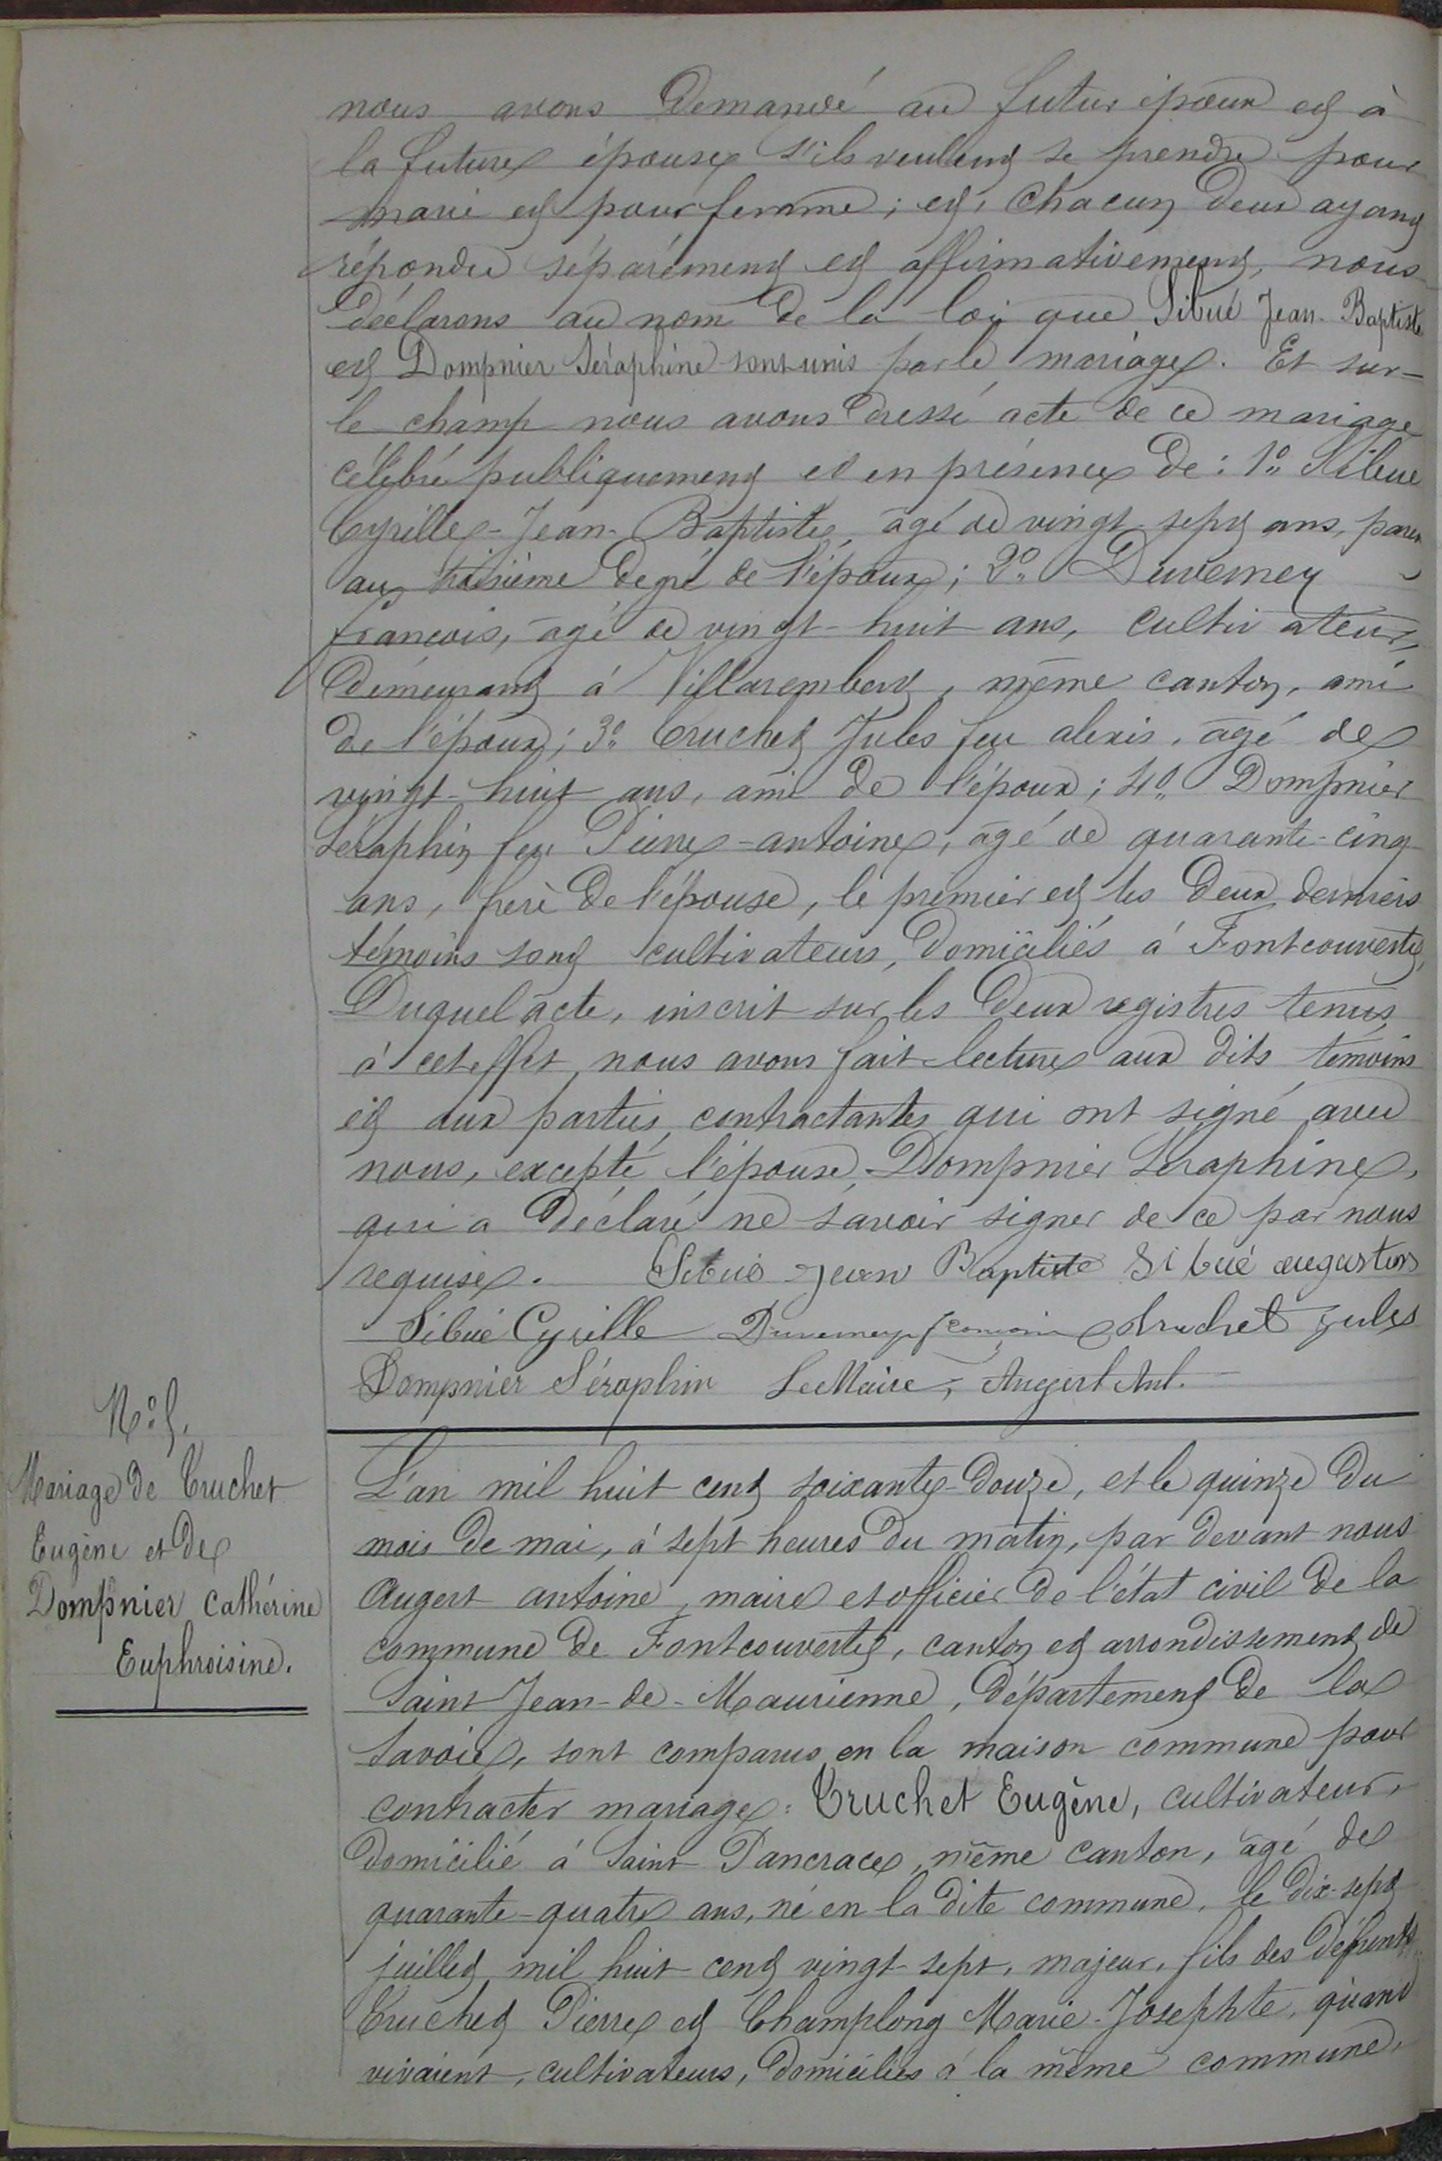 nous avons demandé au futur époux et à
la future épouse s'ils veulent se prendre pour
mari et pour femme ; et, chacun deux ayant
répondu séparément et affirmativement, nous
déclarons au nom de la loi que Sibué Jean-Baptiste
et Dompnier Séraphine sont unis par le mariage. Et sur-
le champ nous avons dressé acte de ce mariage
célébré publiquement et en présence de : 1º Sibué
Cyrille-Jean-Baptiste, âgé de vingt-sept ans, parent
au troisième degré de l'époux ; 2º Duverney
francois, âgé de vingt-huit ans, cultivateur,
demeurant à Villarembert, même canton, ami
de l'époux ; 3º Truchet Jules feu alexis, âgé de
vingt-huit ans, ami de l'époux ; 4º Dompnier
Séraphin feu Pierre-antoine, âgé de quarante-cinq
ans, frère de l'épouse, le premier et les deux derniers
témoins sont cultivateurs, domiciliés à Fontcouverte,
Duquel acte, inscrit sur les deux registres tenus
à cet effet, nous avons fait lecture aux dits témoins
et aux parties contractantes qui ont signé avec
nous, excepté l'épouse Dompnier Séraphine,
qui a déclaré ne savoir signer de ce par nous
requise. Sibué Jean Baptiste Sibué augustin
Sibué Cyrille Duverney francois truchet jules
Dompnier Séraphin Le Maire, Augert Ant.
Nº 5.
Mariage de Truchet
Eugène et de
Dompnier Cathérine
Euphroisine.
L'an mil huit cent soixante-douze, et le quinze du
mois de mai, à sept heures du matin, par devant nous
Augert antoine, maire et officier de l'état civil de la
commune de Fontcouverte, canton et arrondissement de
Saint Jean-de-Maurienne, département de la
Savoie, sont comparus en la maison commune pour
contracter mariage : Truchet Eugène, cultivateur,
domicilié à Saint Pancrace, même canton, âgé de
quarante-quatre ans, né en la dite commune, le dix-sept
juillet mil huit cent vingt-sept, majeur, fils des défunts
Truchet Pierre et Champlong Marie-Josephte, quand
vivaient, cultivateurs, domiciliés à la même commune,